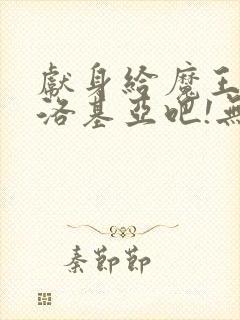 獻身給魔王
洛基亞吧!無
秦節節